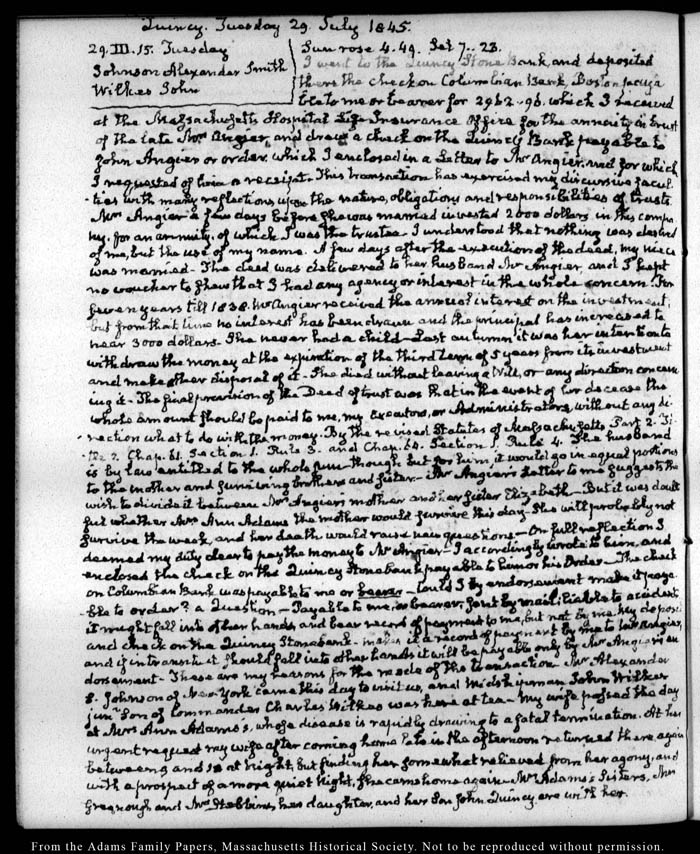 Quincy. Tuesday 29 July 1845.
29. III. 15. Tuesday
Johnson Alexander Smith
Wilkes John
Sun rose 4.49. Set 7..23.
I went to the Quincy Stone Bank, and deposited
there the check on Columbian Bank, Boston paya
ble to me or bearer for 2962-96. which I received
at the Massachusetts Hospital Life Insurance Office for the annuity in trust
of the late Mrs Angier, and drew a check on the Quincy Bank payable to
John Angier or order, which I enclosed in a Letter to Mr Angier, and for which
I requested of him a receipt. This transaction has exercised my discursive facul
-ties with many reflections upon the nature, obligations and responsibilities of trusts
Mrs Angier a few days before she was married invested 2000 dollars in this compa
ny, for an annuity, of which I was the trustee. I understood that nothing was desired
of me, but the use of my name. A few days after the execution of the deed, my niece
was married. The deed was delivered to her husband Mr Angier, and I kept
no voucher to shew that I had any agency or interest in the whole concern. For
seven years till 1838. Mr Angier received the annual interest on the investment,
but from that time no interest has been drawn and the principal has increased to
near 3000 dollars. She never had a child. Last autumn it was her intention to
withdraw the money at the expiration of the third term of 5 years from its investment
and make other disposal of it. She died without leaving a Will, or any direction concern
ing it. The final provision of the Deed of trust was that in the event of her decease the
whole amount should be paid to me, my Executors, or Administrators, without any di
-rection what to do with the money. By the revised Statutes of Massachusetts Part 2. Ti
-tle 2. Chap. 61. Section 1. Rule 3. and Chap. 64. Section 1. Rule 4. The husband
is by law entitled to the whole sum though but for him it would go in equal portions
to the mother and surviving brothers and sister. Mr Angier's Letter to me suggests the
wish to divide it between Mrs Angier's mother and her sister Elizabeth. But it was doubt
ful whether Mrs Ann Adams the mother would survive this day. She will probably not
survive the week, and her death would raise new questions. On full reflection I
deemed my duty clear to pay the money to Mr Angier. I accordingly wrote to him, and
enclosed the check on the Quincy Stone bank payable to him or his Order. The check
on Columbian Bank was payable to me or bearer. Could I by endorsement make it paya
ble to order? a Question. Payable to me, or bearer, sent by mail, liable to accident
it might fall into other hands, and bear record of payment to me, but not by me. My deposit
and check on the Quincy Stone bank makes it a record of payment by me to Mr Angier,
and if in transitu it should fall into other hands it will be payable only by Mr Angier's en
dorsement. These are my reasons for the mode of the transaction. Mr Alexander
S. Johnson of New-York came this day to visit us, and Midshipman John Wilkes
junr. son of Commander Charles Wilkes was here at tea. My wife passed the day
at Mrs Ann Adams's, whose disease is rapidly drawing to a fatal termination. At her
urgent request my wife after coming home late in the afternoon returned there again
between 9 and 10 at night, but finding her somewhat relieved from her agony, and
with a prospect of a more quiet night, she came home again. Mrs Adams's Sisters, Mrs
Greenough and Mrs Stebbins, her daughter, and her Son John Quincy are with her.
From the Adams Family Papers, Massachusetts Historical Society. Not to be reproduced without permission.